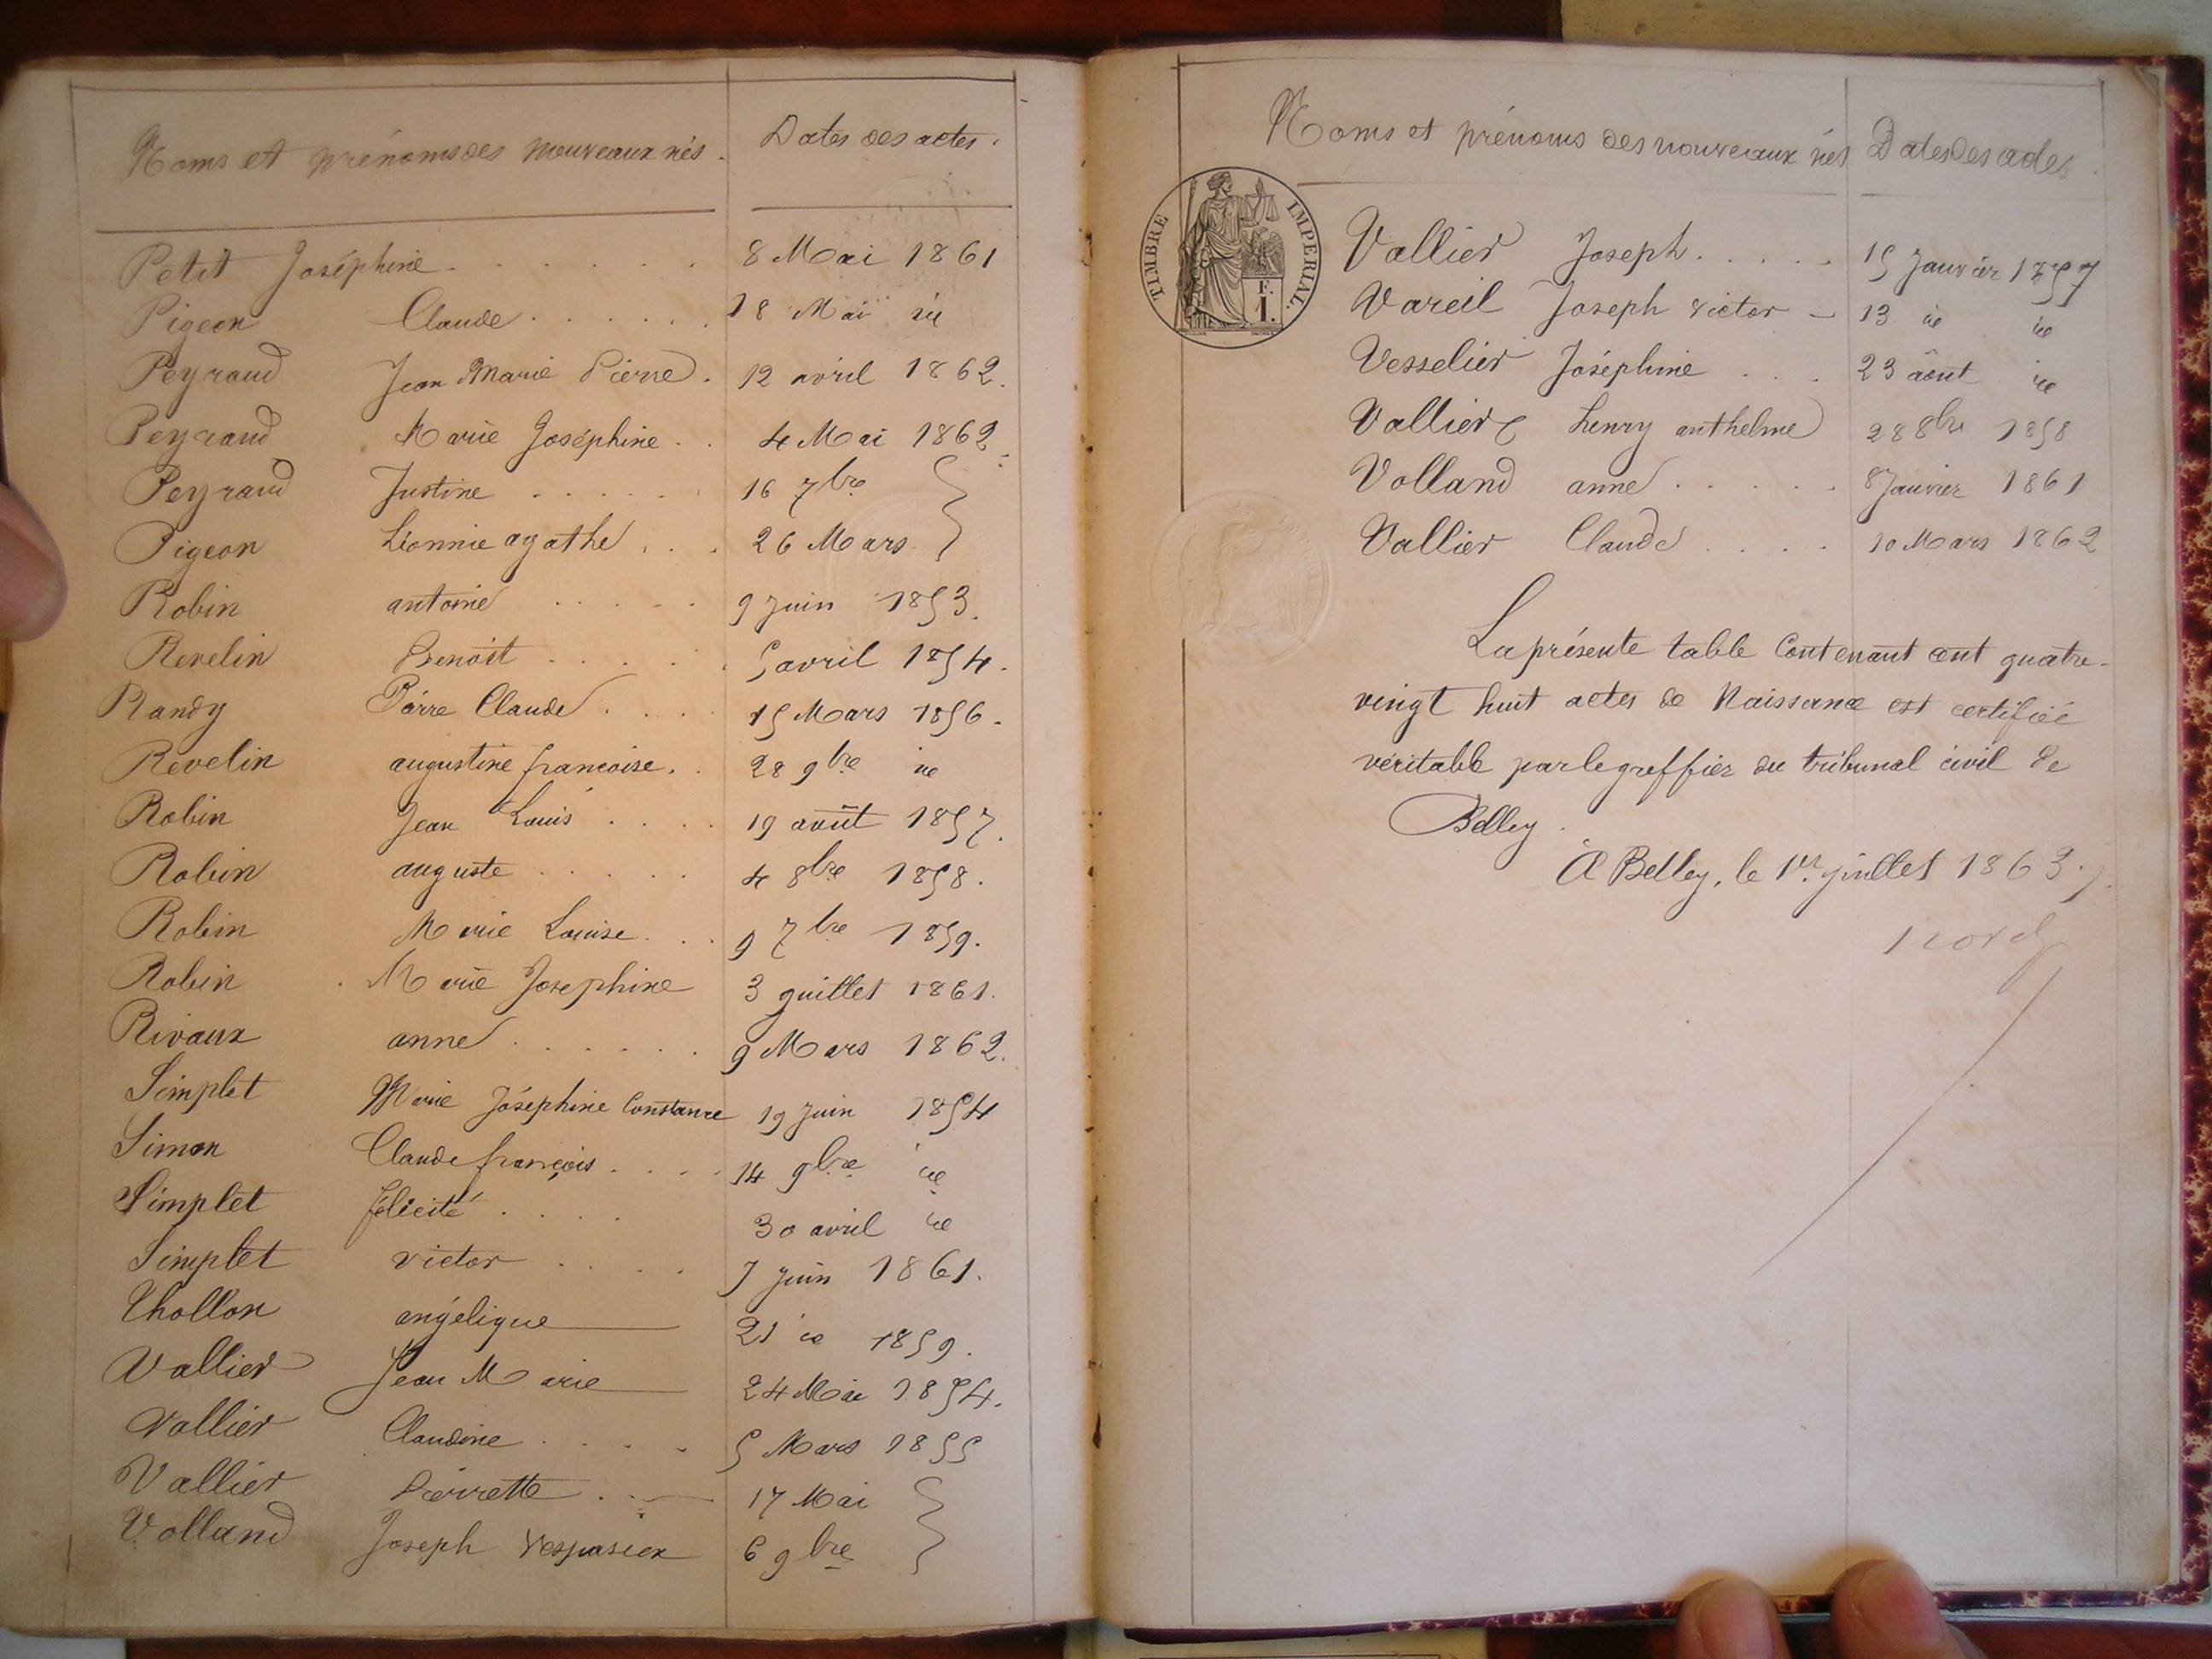 Noms et prénoms des nouveaux nés. Dates des actes.
Petit Joséphine 8 Mai 1861
Pigeon Claude 18 Mai id
Peyraud Jean Marie Pierre. 12 avril 1862.
Peyraud Marie Joséphine 4 Mai 1862
Peyraud Justine 16 7bre
Pigeon Léonnie agathe 26 Mars
Robin antoine 9 Juin 1853.
Revelin Benoit 5 avril 1854.
Randy Pierre Claude 15 Mars 1856.
Revelin augustine francoise. 28 9bre id
Robin Jean Louis 19 août 1857.
Robin auguste 4 8bre 1858.
Robin Marie Louise 9 7bre 1859.
Robin Marie Josephine 3 juillet 1861.
Rivaux anne 9 Mars 1862.
Simplet Marie Joséphine Constance 19 Juin 1854
Simon Claude françois 14 9bre id
Simplet félicité 30 avril id
Simplet victor 7 juin 1861.
Thollon angélique 21 id 1859.
Vallier Jean Marie 24 Mai 1854.
Vallier Claudine 5 Mars 1855
Vallier Pierrette 17 Mai
Volland Joseph Vespasien 6 9bre
Noms et prénoms des nouveaux nés Dates des actes
TIMBRE IMPERIAL.
F.
1.
Vallier Joseph 15 Janvier 1857
Vareil Joseph victor 13 id id
Vesselier Joséphine 23 août id
Vallier Henry anthelme 28 8bre 1858
Volland anne 8 Janvier 1861
Vallier Claude 10 Mars 1862
La présente table Contenant cent quatre-
vingt huit actes de Naissance est certifiée
véritable par le greffier du tribunal civil de
Belley.
A Belley, le 1er. juillet 1863.